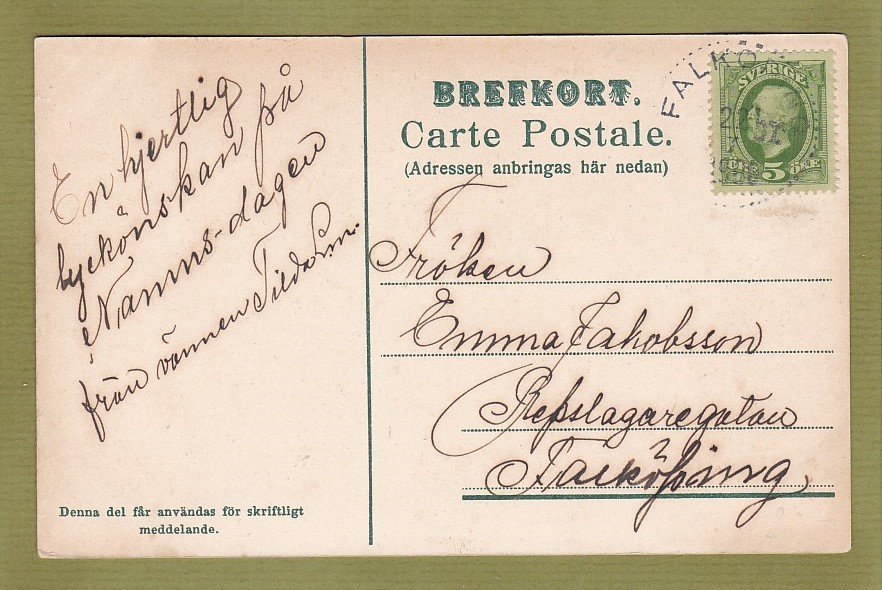 En hjertlig
lyckönskan på
Namns-dagen
från vännen Tilda Lm.
Denna del får användas för skriftligt
meddelande.
BREFKORT.
Carte Postale.
(Adressen anbringas här nedan)
FALKÖ
SVERIGE
5 ÖRE
Fröken
Emma Jakobsson
Repslagaregatan
Falköping